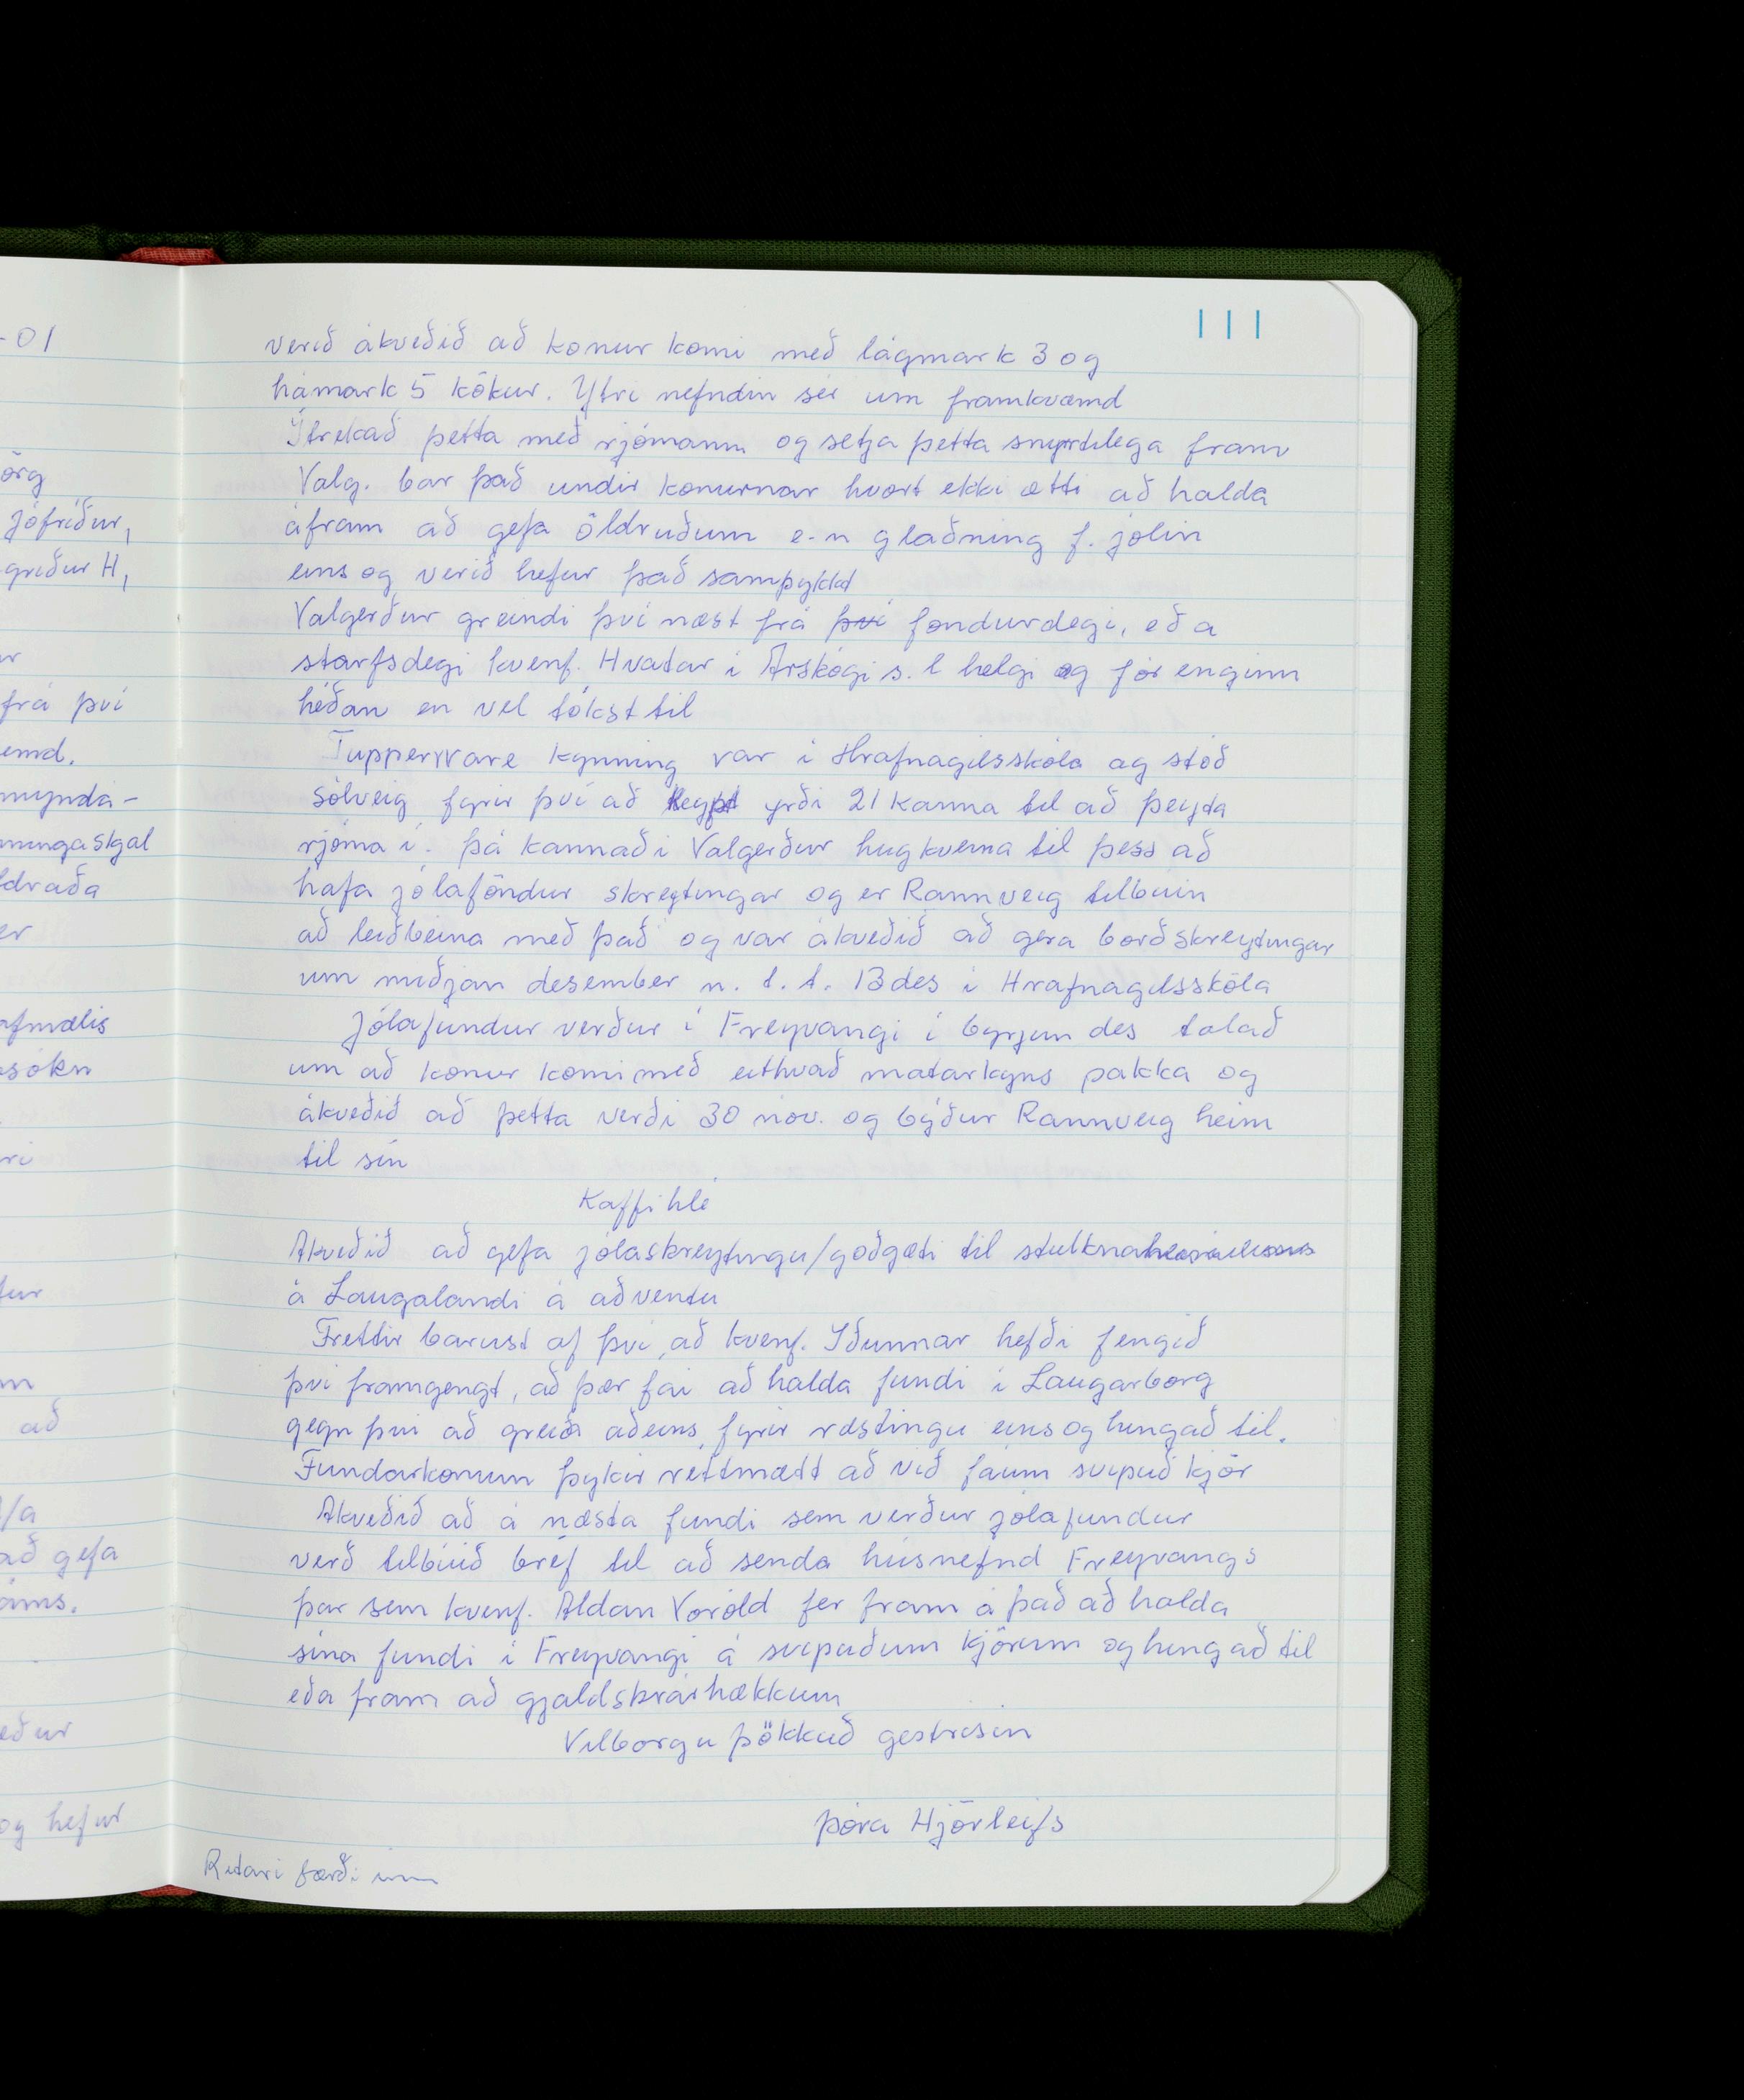 111
verið ákveðið að konur komi með lágmark 3 og
hámark 5 kökur. Ytri nefndin sér um framkvæmd
Ítrekað þetta með rjómann og setja þetta snyrtilega fram
Valg. bar það undir konurnar hvort ekki ætti að halda
áfram að gefa öldruðum e-n glaðning f. jólin
eins og verið hefur það samþykkt
Valgerður greindi því næst frá því föndurdegi, eða
starfsdegi kvenf. Hvatar í Árskógi s.l helgi og fór enginn
héðan en vel tókst til
Tupperware kynning var í Hrafnagilsskóla og stóð
Sólveig fyrir því að keypt yrði 21 kanna til að þeyta
rjóma í. Þá kannaði Valgerður hug kvenna til þess að
hafa jólaföndur skreytingar og er Rannveig tilbúin
að leiðbeina með það og var ákveðið að gera borðskreytingar
um miðjan desember n.t.t. 13 des í Hrafnagilsskóla
Jólafundur verður í Freyvangi í byrjun des talað
um að konur komi með eithvað matarkyns pakka og
ákveðið að þetta verði 30 nóv. og býður Rannveig heim
til sín
Kaffihlé
Ákveðið að gefa jólaskreytingu/goðgæti til
á Laugalandi á aðventu
Fréttir bárust af því, að kvenf. Iðunnar hefði fengið
því framgengt, að þær fái að halda fundi í Laugarborg
gegn því að greiða aðeins fyrir ræstingu eins og hingað til.
Fundarkonum þykir réttmætt að við fáum svipuð kjör
Ákveðið að á næsta fundi sem verður jólafundur
verð tilbúið bréf til að senda húsnefnd Freyvangs
þar sem kvenf. Aldan Voröld fer fram á það að halda
sína fundi í Freyvangi á svipuðum kjörum og hingað til
eða fram að gjaldskrárhækkum
Vilborgu þökkuð gestrisin
Þóra Hjörleifs
Ritari færði inn
-01
örg
Jófríður,
gríður H,
ur
frá því
emd.
mynda-
nningaskjal
ldraða
er
afmælis
sókn
ri
fur
m
að
l/a
að gefa
áms.
eður
og hefur